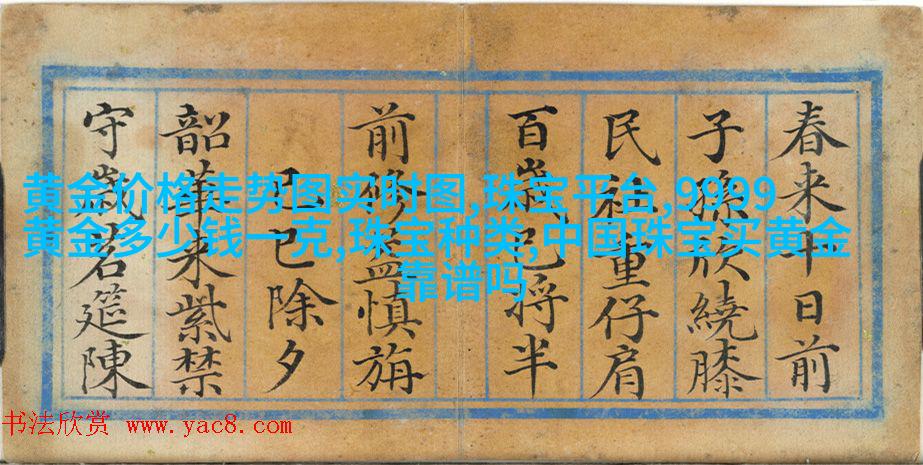 春来十日前
子孫欣繞膝
民社重仔肩
百歲已将半
前修益慎旃
己巳除夕
韶華来紫禁
守歲茗筵陳
黄金价格走势图实时图,珠宝平台,9999
黄金多少钱一克,珠宝种类,中国珠宝买黄金
靠谱吗
书法欣赏 www.yac8.com